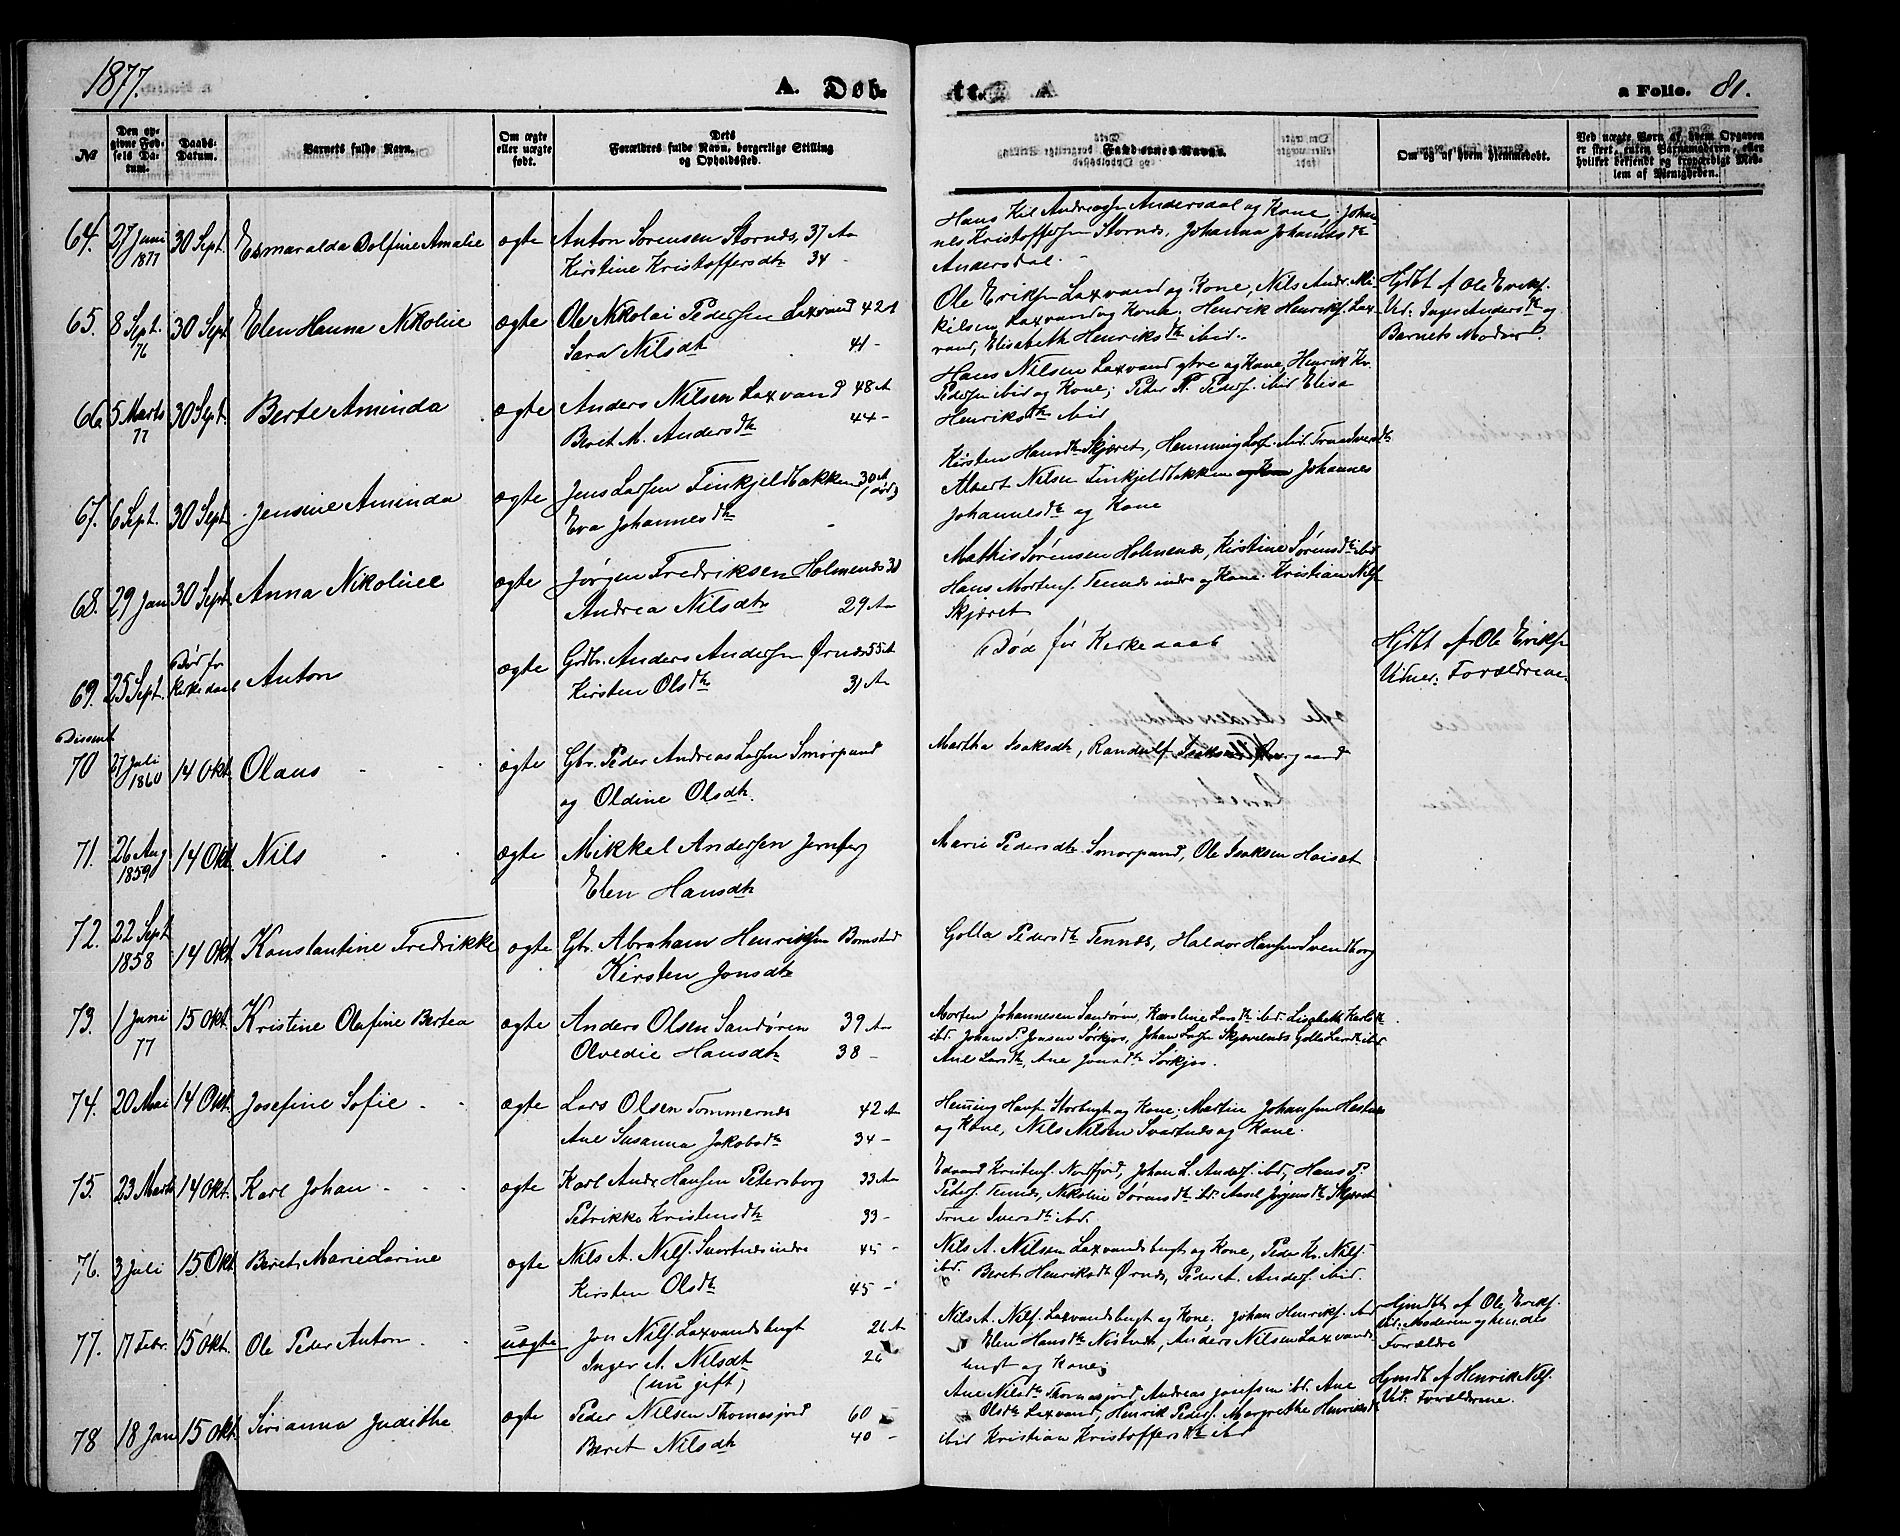 1877.
A. Døb-
te. A
a Folio. 81.
№
Den opgivne Fødsels Datum.
Daabs-Datum.
Barnets fulde Navn.
Om ægte eller uægte født.
Dets Forældres fulde Navn, borgerlige Stilling og Opholdssted.
Faddernes Navne.
Om og af hvem hjemmedøbt.
Ved uægte Børn af hvem Opgaven er skeet, enten Barnemoderen, eller hvilket bekjendt og troværdigt Medlem af Menigheden.
64. 27 Juni 1877 30 Sept. Esmaralda Dolfine Amalie ægte Anton Sørensen Stornes, 37 Aar
Kirstine Kristoffersdtr 34 -
Hans Kil Andreasen Andersdal og Kone, Johan-
nes Kristoffersen Stornes, Johanna Johannesdtr
Andersdal.
65. 8 Sept. 76 30 Sept Elen Hanna Nikoline ægte Ole Nikolai Pedersen Laxvand 42 A
Sara Nilsdtr 41 -
Ole Eriksen Laxvand og Kone, Nils Andr. Mi-
kilsen Laxvand og Kone, Henrik Henriks. Lax-
vand, Elisabeth Henriksdtr ibid.
Hjdbt af Ole Eriks.
Vid: Inger Andersdtr og
Barnets Moder.
66 5 Marts 77 30 Sept. Berte Aminda ægte Anders Nilsen Laxvand 48 A
Beret M. Andersdtr 44 -
Hans Nilsen Laxvand og Kone, Henrik Kr.
Pedersen ibid og Kone; Peter N. Peders. ibid Elisa
Henriksdtr ibid
67. 6 Sept. 30 Sept Jensine Aminda ægte Jens Larsen Finkjeldbakken 30 A
Eva Johannesdtr -
Kirsten Hansdtr Skjæret, Henning Lars. ibid.
Albert Nilsen Finkjeldbakken og Kone Johannes
Johannesdtr og Kone
68. 29 Jan 30 Sept Anna Nikoline ægte Jørgen Fredriksen Holmenes 30
Andrea Nilsdtr 29 Aar
Mathis Sørensen Holmenes, Kirstine Sørensdtr ibid
Hans Mortens. Tennes indre og Kone. Kristian Nils.
Skjæret
69. 25 Sept. Død før Kirkedaab Anton ægte Grdbr. Anders Andersen Ørnes 55 A
Kirsten Olsdtr 31 Aar
Død før Kirkedaab
Hjdbt af Ole Eriksen
Vidner: Forældrene.
Dissent
70 27 Juli 1860 14 Okt. Olaus - - ægte Gbr. Peder Andreas Larsen Smørpund
og Oldine Olsdtr.
Martha Isaksdtr, Randulf Isaksen
71. 26 Aug 1859 14 Okt. Nils - - ægte Mikkel Andersen Jernberg
Elen Hansdtr
Marie Pedersdtr Smørpund, Ole Isaksen
72. 22 Sept 1858 14 Okt. Konstantine Fredrikke ægte Gbr. Abraham Henriksen Bomstad
Kirsten Jonsdtr
Golla Pedersdtr Tennes, Haldor Hansen Svendborg
73. 1 Juni 77 15 Okt. Kristine Olufine Bertea ægte Anders Olsen Sandøren 39 Aar
Olvedie Hansdtr 38 -
Morten Johannesen Sandøren, Karoline Larsdtr ibd. Lisabeth Karlsdtr
ibd. Johan P. Jensen Sørkjos, Johan Larsen Skjævelnes Golla Larsdtr ibd
Ane Larsdtr, Ane Jensdtr Sørkjos.
74. 20 Mai 14 Okt. Josefine Sofie - - ægte Lars Olsen Tommernes 42 A
Ane Susanna Jakobsdtr 34 -
Henning Hansen Storbugt og Kone, Martin Johansen Hestnes
og Kone, Nils Nilsen Svartnes og Kone.
75. 23 Marts 14 Okt. Karl Johan - - ægte Karl Andr. Hansen Petersborg 33 Aar
Petrikke Kristensdtr 33 -
Edvard Kristens. Nordfjord, Johan L. Anders. ibd, Hans P.
Peders. Tennes, Nikoline Sørensdtr ibd. Aasel Jørgensdtr Skjæret
Trine Iversdtr ibd.
76. 3 Juli 15 Okt Beret Marie Larine ægte Nils A. Nils. Svartnes indre 45 -
Kirsten Olsdtr 45 -
Nils A. Nilsen Laxvandsbugt og Kone, Peder Kr. Nils.
ibd. Beret Henriksdtr Ørnes, Peder A. Anders. ibid.
77. 17 Febr. 15 Okt. Ole Peder Anton - uægte Jon Nils. Laxvandsbugt 26 A
Inger A. Nilsdtr 26
(nu gift)
Nils A. Nils. Laxvandsbugt og Kone. Johan Henriks. ibd
Elen Hansdtr, Anders Nilsen Laxvands-
bugt og Kone.
Hjmdbt af Ole Eriks.
Vid. Moderen og hendes
Forældre
78 18 Jan 15 Okt Sirianna Judithe ægte Peder Nilsen Thomasjord 60 -
Beret Nilsdtr 40 -
Ane Nilsdtr Thomasjord, Andreas Josefsen ibd. Ane
Olsdtr Laxvand, Henrik Peders. Margrethe Henriksdtr
ibid Kristian Kristoffersdtr ibd
Hjmdbt af Henrik Nils.
Vid. Forældrene.